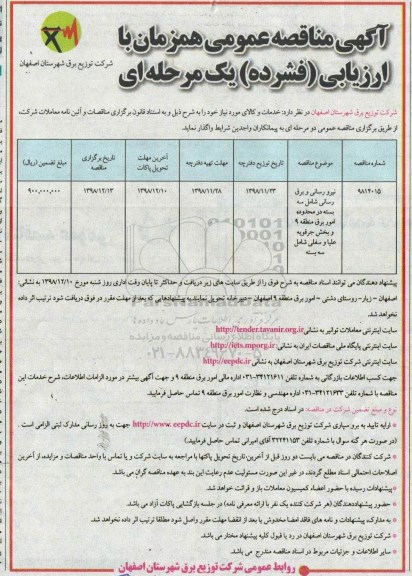 آگهی مناقصه عمومی همزمان با
ارزیابی (فشرده) یک مرحله ای
شرکت توزیع برق شهرستان اصفهان
شرکت توزیع برق شهرستان اصفهان در نظر دارد: خدمات و کالای مورد نیاز خود را به شرح ذیل و به استناد قانون برگزاری مناقصات و آئین نامه معاملات شرکت،
از طریق برگزاری مناقصه عمومی دو مرحله ای به پیمانکاران واجدین شرایط واگذار نماید.
شماره مناقصه
موضوع مناقصه
تاریخ توزیع دفترچه
مهلت تهیه دفترچه
آخرین مهلت تحویل پاکات
تاریخ برگزاری مناقصه
مبلغ تضمین (ریال)
۹۸۱۴۰۱۵
نیرو رسانی و برق
رسانی شامل سه
بسته در محدوده
امور برق منطقه ۹
و بخش جرقویه
علیا و سفلی شامل
سه بسته
۱۳۹۸/۱۱/۲۳
۱۳۹۸/۱۱/۲۸
۱۳۹۸/۱۲/۱۰
۱۳۹۸/۱۲/۱۳
۹۰۰,۰۰۰,۰۰۰
پیشنهاد دهندگان می توانند اسناد مناقصه به شرح فوق را از طریق سایت های زیر دریافت و حداکثر تا پایان وقت اداری روز شنبه مورخ ۱۳۹۸/۱۲/۱۰ به نشانی:
اصفهان - زیار - روستای دشتی - امور برق منطقه ۹ اصفهان - دبیرخانه تحویل نمایند به پیشنهادهایی که بعد از مهلت مقرر در فوق دریافت شود ترتیب اثر داده
نخواهد شد.
سایت اینترنتی معاملات توانیر به نشانی http://tender.tavanir.org.ir
سایت اینترنتی پایگاه ملی مناقصات ایران به نشانی http://iets.mporg.ir
سایت اینترنتی شرکت توزیع برق شهرستان اصفهان به نشانی http://eepdc.ir
جهت کسب اطلاعات بازرگانی به شماره تلفن ۳۴۱۲۱۶۱۱-۰۳۱ اداره مالی امور برق منطقه ۹ و جهت آگهی بیشتر در مورد الزامات اطلاعات، شرح خدمات این
مناقصه با شماره تلفن ۳۴۱۲۱۶۳۳-۰۳۱ اداره مهندسی و نظارت امور برق منطقه ۹ تماس حاصل فرمایید.
نوع و مبلغ تضمین شرکت در مناقصه: در اسناد درج شده است.
ارایه تایید به بر سپاری شرکت توزیع برق شهرستان اصفهان و ثبت در سایت http://www.eepdc.ir جهت به روز رسانی مدارک ثبتی الزامی است.
(در صورت هر گونه سوال با شماره تلفن ۳۲۲۴۱۱۵۳ آقای امیرانی تماس حاصل فرمایید)
شرکت کنندگان در مناقصه می بایست دو روز قبل از آخرین تاریخ تحویل پاکتها با مراجعه به سایت شرکت و یا تماس با واحد مناقصات و مزایده، از آخرین
اصلاحات احتمالی اسناد مطلع گردند، در غیر این صورت مسئولیت عدم رعایت این بند به عهده مناقصه گران می باشد.
پیشنهادات رسیده با حضور اعضاء کمیسیون معاملات باز و قرائت خواهد شد.
حضور پیشنهاددهندگان (هر شرکت کننده یک نفر با ارائه معرفی نامه) در جلسه بازگشایی پاکات آزاد می باشد.
به مدارک، پیشنهادات و نامه های فاقد امضا مخدوش یا بعد از انقضا مهلت مقرر واصل شود مطلقا ترتیب اثر داده نخواهد شد.
شرکت توزیع برق شهرستان اصفهان در رد یا قبول کلیه پیشنهاد مختار می باشد.
سایر اطلاعات و جزئیات مربوط در اسناد مناقصه مندرج می باشد.
روابط عمومی شرکت توزیع برق شهرستان اصفهان